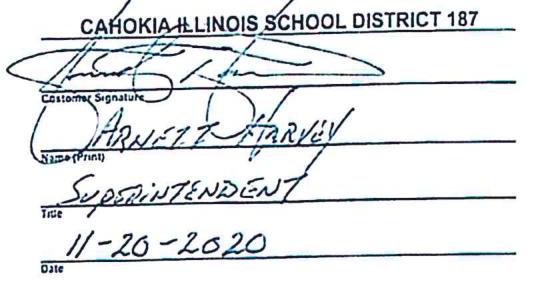 CAHOKIA ILLINOIS SCHOOL DISTRICT 187
Customer Signature
ARNETT HARVEY
Name (Print)
SUPERINTENDENT
Title
11-20-2020
Date